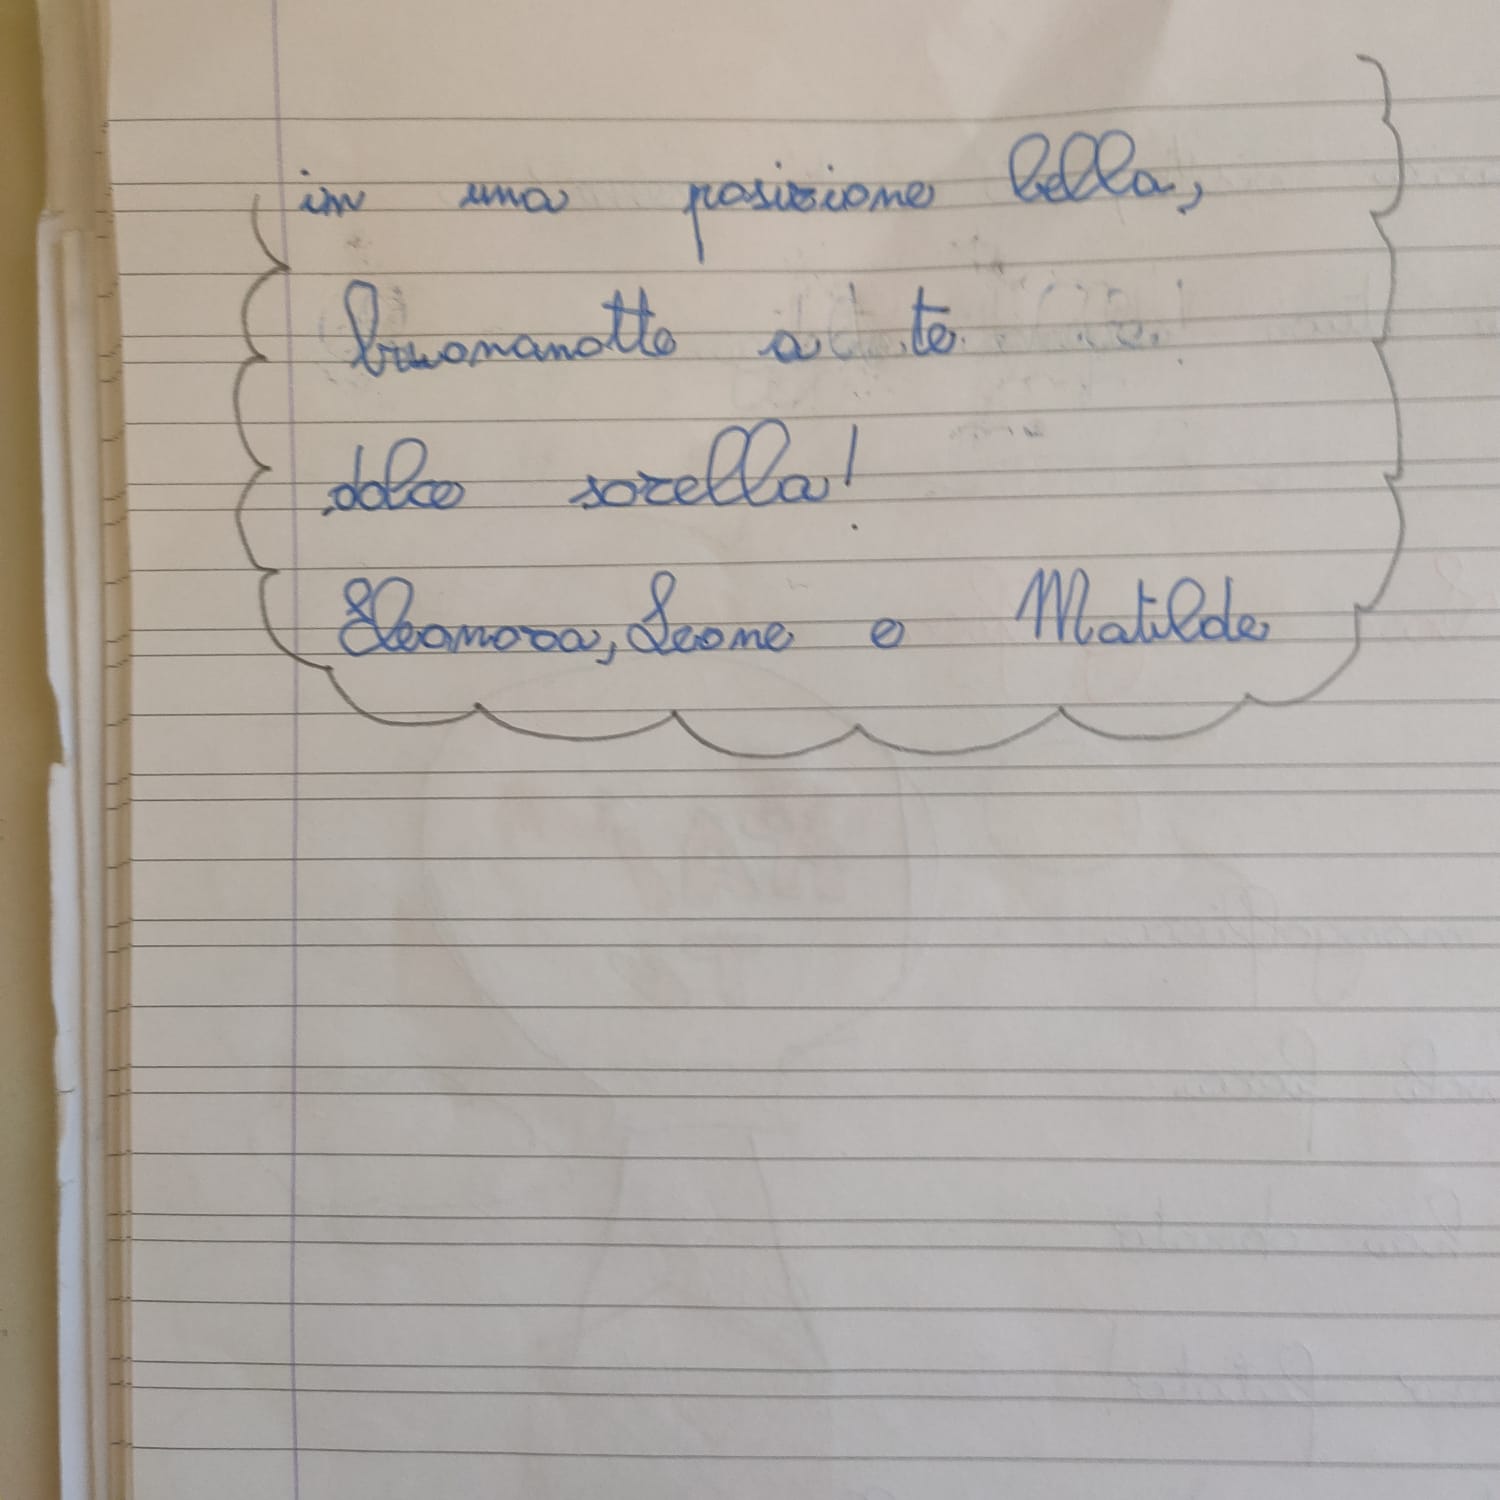 in una posizione bella,
buonanotte a te
dolce sorella!
Eleonora, Leone e Matilde